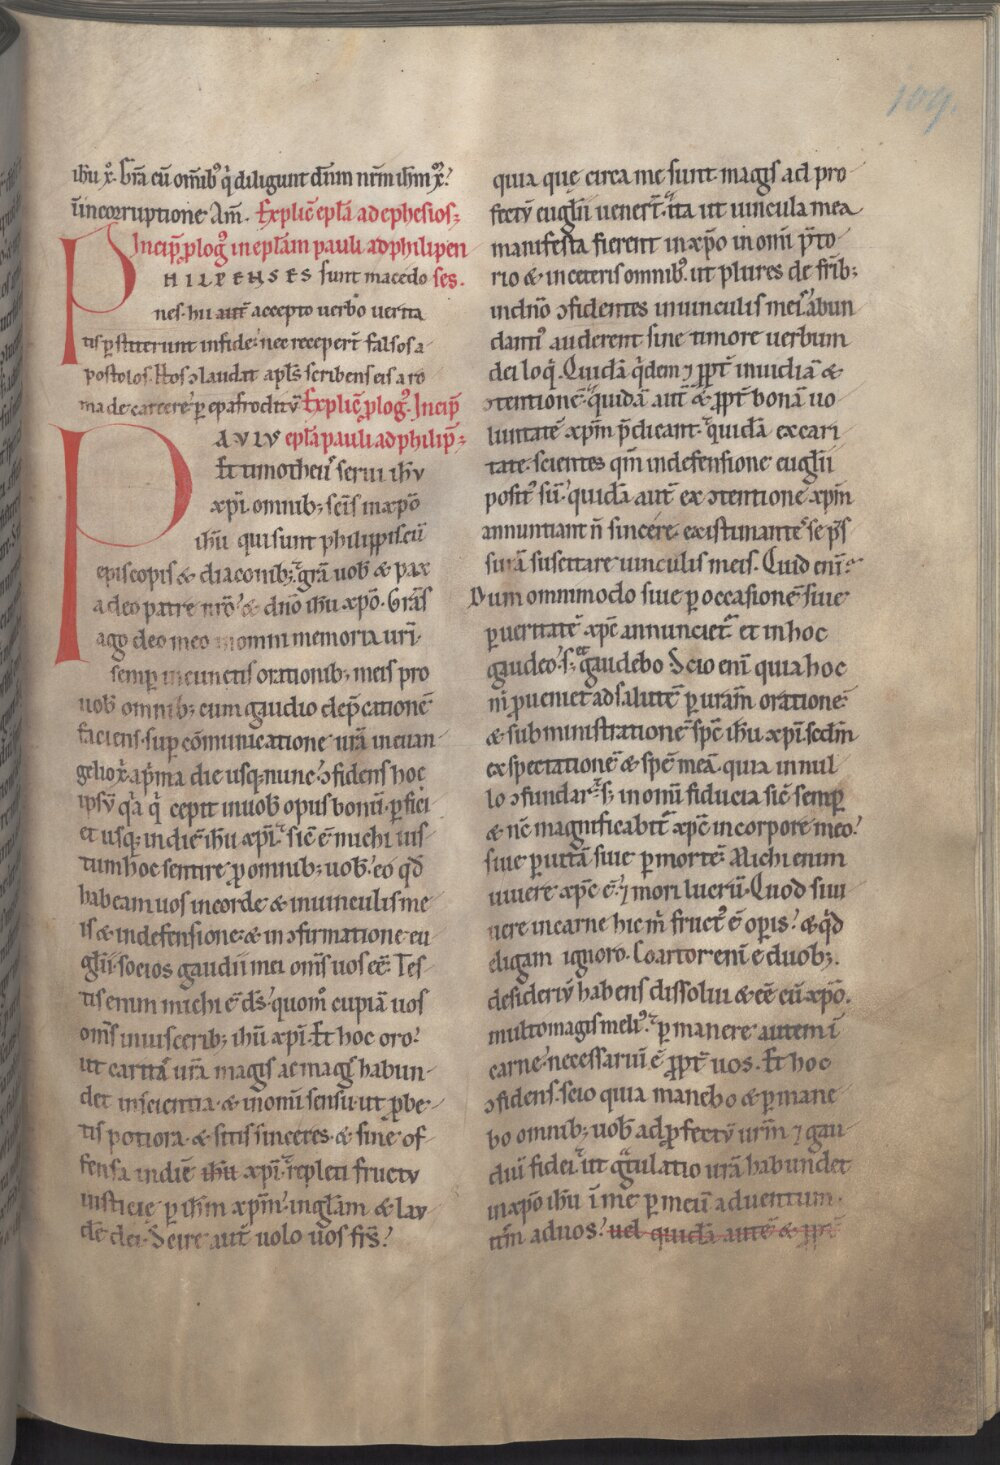 109.
ih̅u x̅. Gr̅a cu̅ om̅ib; q̇ diligunt dn̅m nr̅m ih̅m x̅.
i̅incorruptione Am̅. Explic̅ epl̅a ad ephesios;
Incip̅ p̱logꝰ in epl̅am pauli ad philipen
P HILPENSES sunt macedo ses.
nes. hii aut̅ accepto uerbo uerita
tis ꝑstiterunt infide. nec recepert̅ falsos a
postolos. Hos ꝯlaudat apl̅s scribens eis a ro
ma de carcere ꝑ epafroditu̅ Explic̅ ꝓlogꝰ. Incip̅
P AVLV epl̅a pauli ad philip̅;
Et timotheuˢ serui ih̅u
xp̅i. omnib; sc̅is in xp̅o
ih̅u qui sunt philippis. cu̅
episcopis & diaconib;. gr̅a uob̅ & pax
a deo patre nr̅o & dn̅o ih̅u xp̅o. Gra̅s
ago deo meo in omni memoria ur̅i.
semꝑ in cunctis orationib; meis pro
uob̅ omnib; cum gaudio dep̅catione̅
faciens. suꝑ co̅municatione ur̅a in euan-
gelio x̅. ap̅ma die usq; nunc. ꝯfidens hoc
ipsu̅ q̇a q̇ cepit in uob̅ opus bonu̅. ꝑfici-
et usq; in die̅ ih̅u xp̅i. sic̅ e̅ michi ius-
tum hoc sentire ꝓ omnib; uob̅. eo qd̅
habeam uos in corde & in uinculis me-
is & in defensione. & in ꝯfirmatione eu-
gl̅ii. socios gaudii mei om̅s uos ee̅. Tes-
tis enim michi e̅ ds̅. quom̊ cupia̅ uos
om̅s in uiscerib; ih̅u xp̅i. Et hoc oro.
ut carita ur̅a magis ac magˢ habun-
det in scientia. & in om̅i sensu. ut ꝓbe-
tis potiora. & sitis sinceres. & sine of-
fensa in die̅ ih̅u xp̅i. repleti fructu
iusticie ꝑ ih̅m xp̅m. in gl̅am & lau
de̅ dei. Scire aut̅ uolo uos frs̅.
quia que circa me sunt magis ad pro-
fectu̅ eugl̅ii uenert̅. ita ut uincula mea
manifesta fierent in xp̅o in om̅i p̅to-
rio & in ceteris omnibꝰ. ut plures de fr̅ib;
in dn̅o ꝯfidentes in uinculis meis. abun
dantiꝰ auderent sine timore uerbum
dei loq̇. Quida̅ q̇dem ⁊ ꝓpt̅ inuidia̅ &
ꝯtentione̅. quida̅ aut̅ & ꝓpt̅ bona̅ uo
luntate̅ xp̅m p̅dicant. quida̅ ex cari-
tate. scientes qm̅ in defensione eugl̅ii
positꝰ su̅. quida̅ aut̅ ex ꝯtentione xp̅m
annuntiant n̅ sincere. existimanteˢ se p̅s
sura̅ suscitare uinculis meis. Quid eni̅.
Dum omnimodo siue ꝑ occasione̅ siue
ꝑ ueritate̅ xp̅c annuncietᷣ. et in hoc
gaudeo. s; & gaudebo Scio eni̅ quia hoc
m̅ ꝓueniet ad salute̅ ꝑ ura̅m oratione̅
& subministratione̅ sp̅c ih̅u xp̅i. scdm̅
expectatione̅ & spe̅ mea̅. quia in nul-
lo ꝯfundarᷣ. s; in om̅i fiducia sic̅ semꝑ
& nc̅ magnificabitᷣ xp̅c in corpore meo.
siue ꝑ uita̅ siue ꝑ morte̅. Michi enim
uiuere xp̅c e̅. ⁊ mori lucru̅. Quod si ui
uere in carne hic m̅ fructꝰ e̅ oꝑis. & q̇d
eligam ignoro. Coartor eni̅ e duob;.
desideriu̅ habens dissolui & ee̅ cu̅ xp̅o.
multo magis meliꝰ. ꝑmanere autem i̅
carne necessariu̅ e̅ ꝓpt̅ uos. Et hoc
ꝯfidens. scio quia manebo & ꝑmane
bo omnib; uob̅ ad ꝓfectu̅ urm̅ ⁊ gau-
diu̅ fidei. ut gᵃtulatio ura̅ habundet
in xp̅o ih̅u i̅ me ꝑ meu̅ aduentum.
it̅m ad uos. uel quida̅ aute̅ & ꝓpt̅